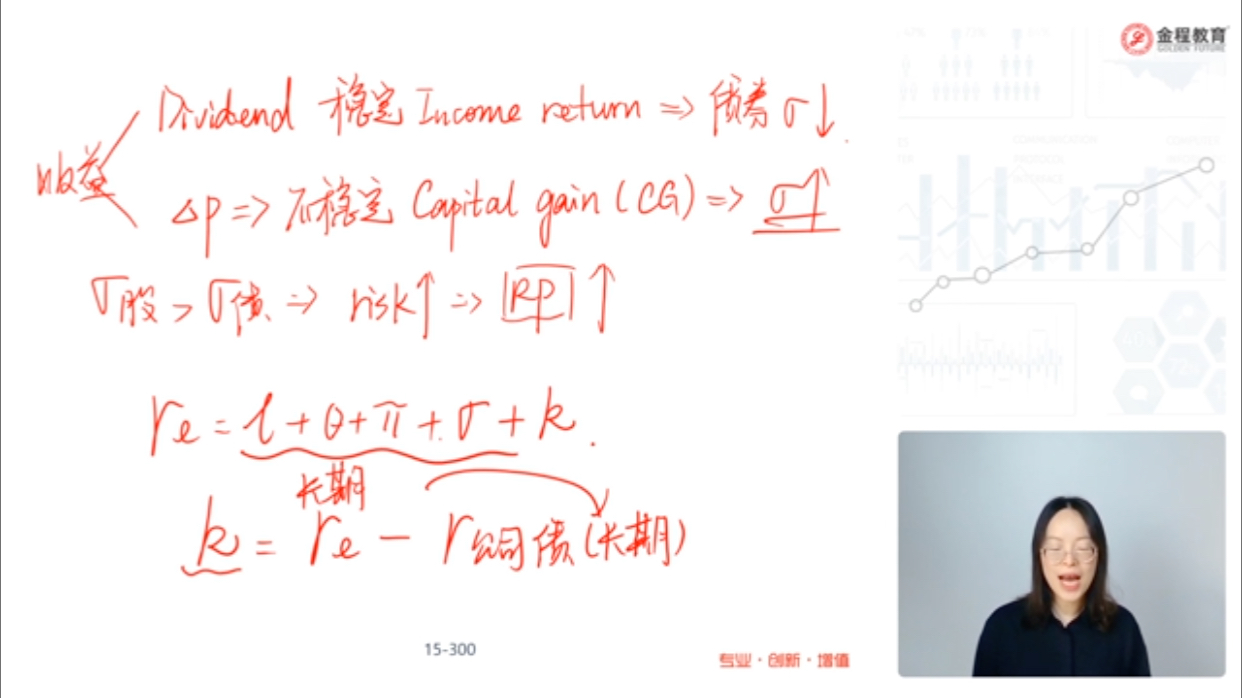 金程教育
GOLDEN FUTURE
Dividend 稳定 Income return => 债券 σ↓.
收益
Δp => 不稳定 Capital gain (CG) => σ↑
σ股 > σ债 => risk↑ => |RP| ↑
re = l + θ + π + σ + k.
长期
k = re - r公司债(长期)
15-300
专业·创新·增值